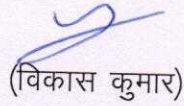 (विकास कुमार)